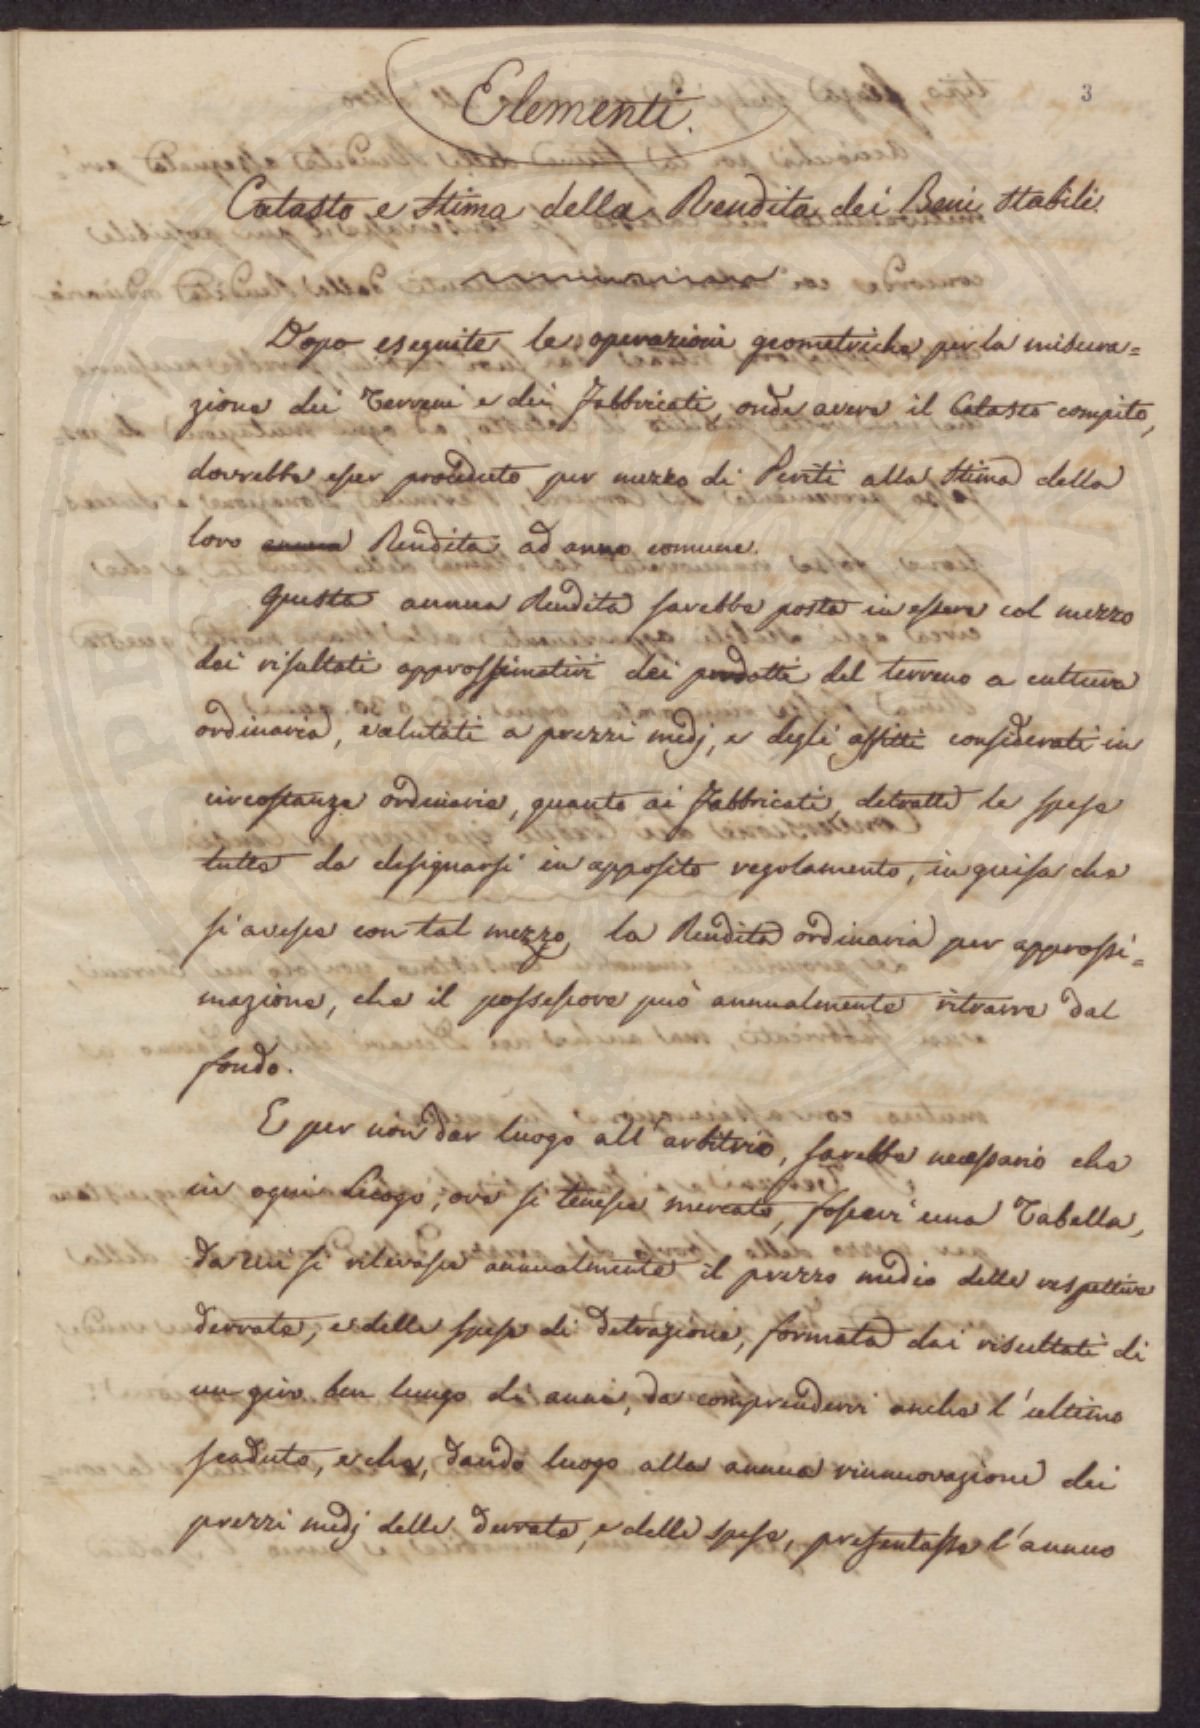 3
Elementi.
Catasto e Stima della Rendita dei Beni Stabili.
Dopo eseguite le operazioni geometriche per la misura=
zione dei Terreni e dei Fabbricati, onde avere il Catasto compito,
dovrebbe esser proceduto per mezzo di Periti alla Stima della
loro annua Rendita ad anno comune.
Questa annua Rendita sarebbe posta in essere col mezzo
dei risultati approssimativi dei prodotti del terreno a cultura
ordinaria, valutati a prezzi medj, e degli affitti considerati in
circostanze ordinarie, quanto ai Fabbricati, detratte le spese
tutte da designarsi in apposito regolamento, in guisa che
si avesse con tal mezzo, la Rendita ordinaria per approssi=
mazione, che il possessore può annualmente ritrarre dal
fondo.
E per non dar luogo all'arbitrio, sarebbe necessario che
in ogni Luogo, ove si tenesse mercato, fossevi una Tabella,
da cui si rilevasse annualmente il prezzo medio delle respettive
derrate, e delle spese di detrazione, formata dai risultati di
un giro ben lungo di anni, da comprendervi anche l'ultimo
scaduto, e che, dando luogo alla annua rinnuovazione dei
prezzi medj delle derrate, e delle spese, presentasse l'annuo